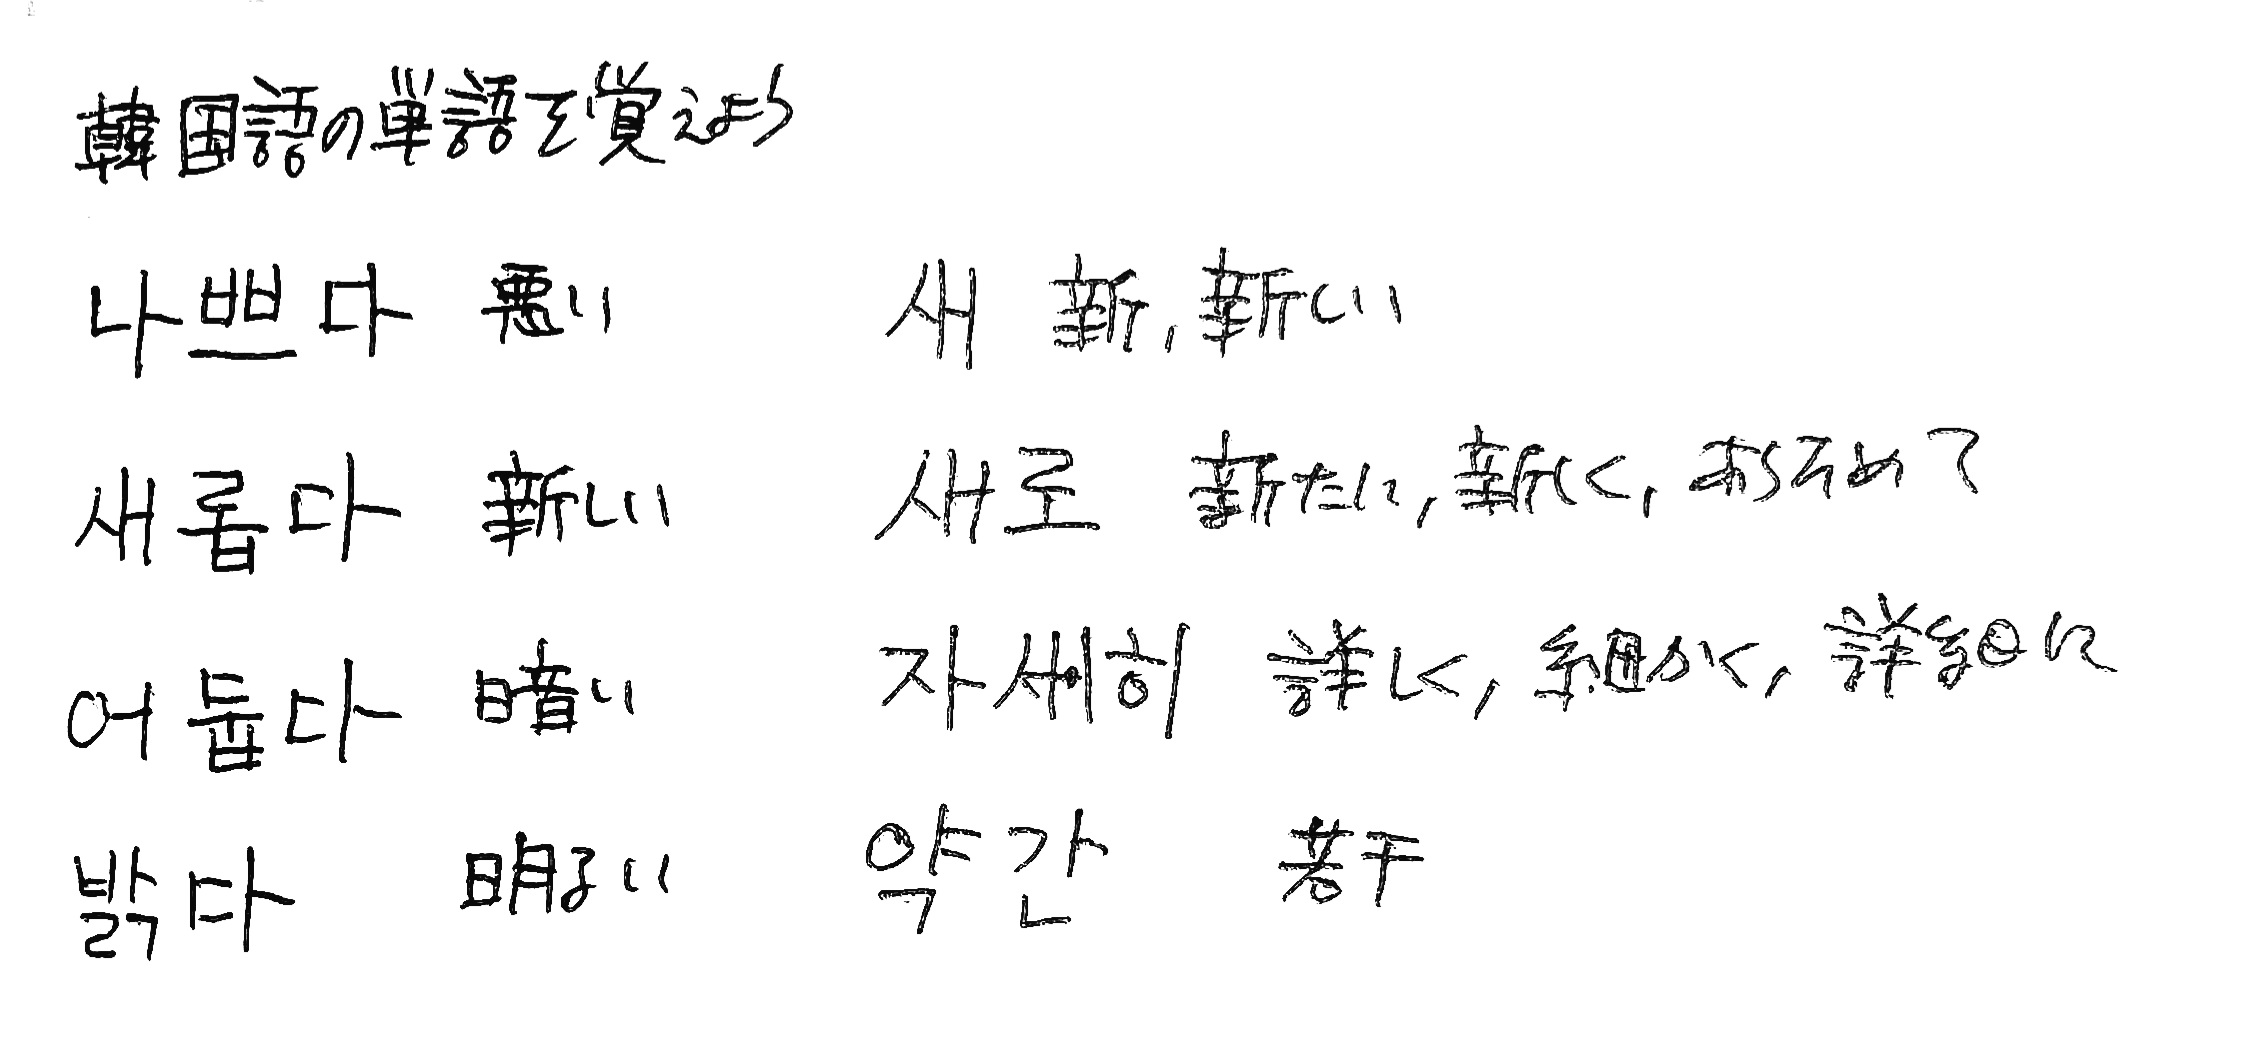 韓国語の単語を覚えよう
나쁘다 悪い 새 新, 新しい
새롭다 新しい 새로 新たに, 新しく, あらためて
어둡다 暗い 자세히 詳しく, 細かく, 詳細に
밝다 明るい 약간 若干